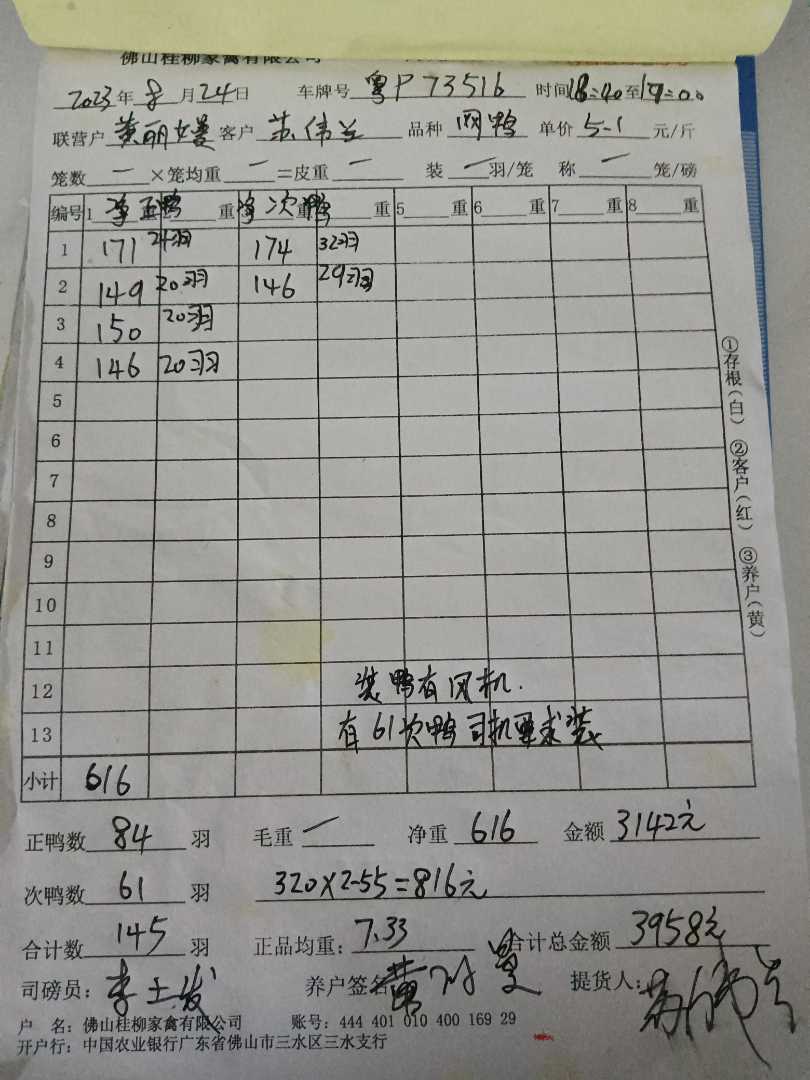 佛山桂柳家禽有限公司
2023年8月24日 车牌号 粤P73516 时间18=40至19=00
联营户 黄丽嫚 客户 苏伟兰 品种 网鸭 单价 5-1 元/斤
笼数 一 ×笼均重 一 =皮重 一 装 一 羽/笼 称 一 笼/磅
编号 1 净正鸭 重 净次鸭 重 5 重 6 重 7 重 8 重
1 171 24羽 174 32羽
2 149 20羽 146 29羽
3 150 20羽
4 146 20羽
5
6
7
8
9
10
11
12 装鸭有风机.
13 有61次鸭司机要求装
小计 616
正鸭数 84 羽 毛重 一 净重 616 金额 3142元
次鸭数 61 羽 320×2-55=816元
合计数 145 羽 正品均重: 7.33 合计总金额 3958元
司磅员: 李土发 养户签名 黄 提货人:
户 名: 佛山桂柳家禽有限公司 账号: 444 401 010 400 169 29
开户行: 中国农业银行广东省佛山市三水区三水支行
①存根(白) ②客户(红) ③养户(黄)